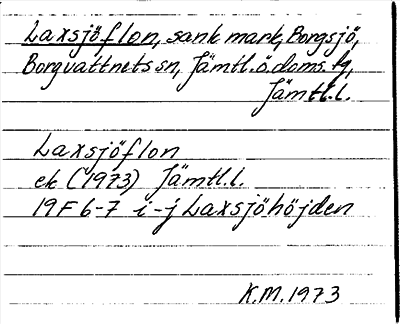 Laxsjöflon, sank mark, Borgsjö,
Borgvattnets sn, Jämtl.ö.doms.tg,
Jämtl.l.
Laxsjöflon
ek (1973) Jämtl.l.
19F 6-7 i-j Laxsjöhöjden
K.M.1973